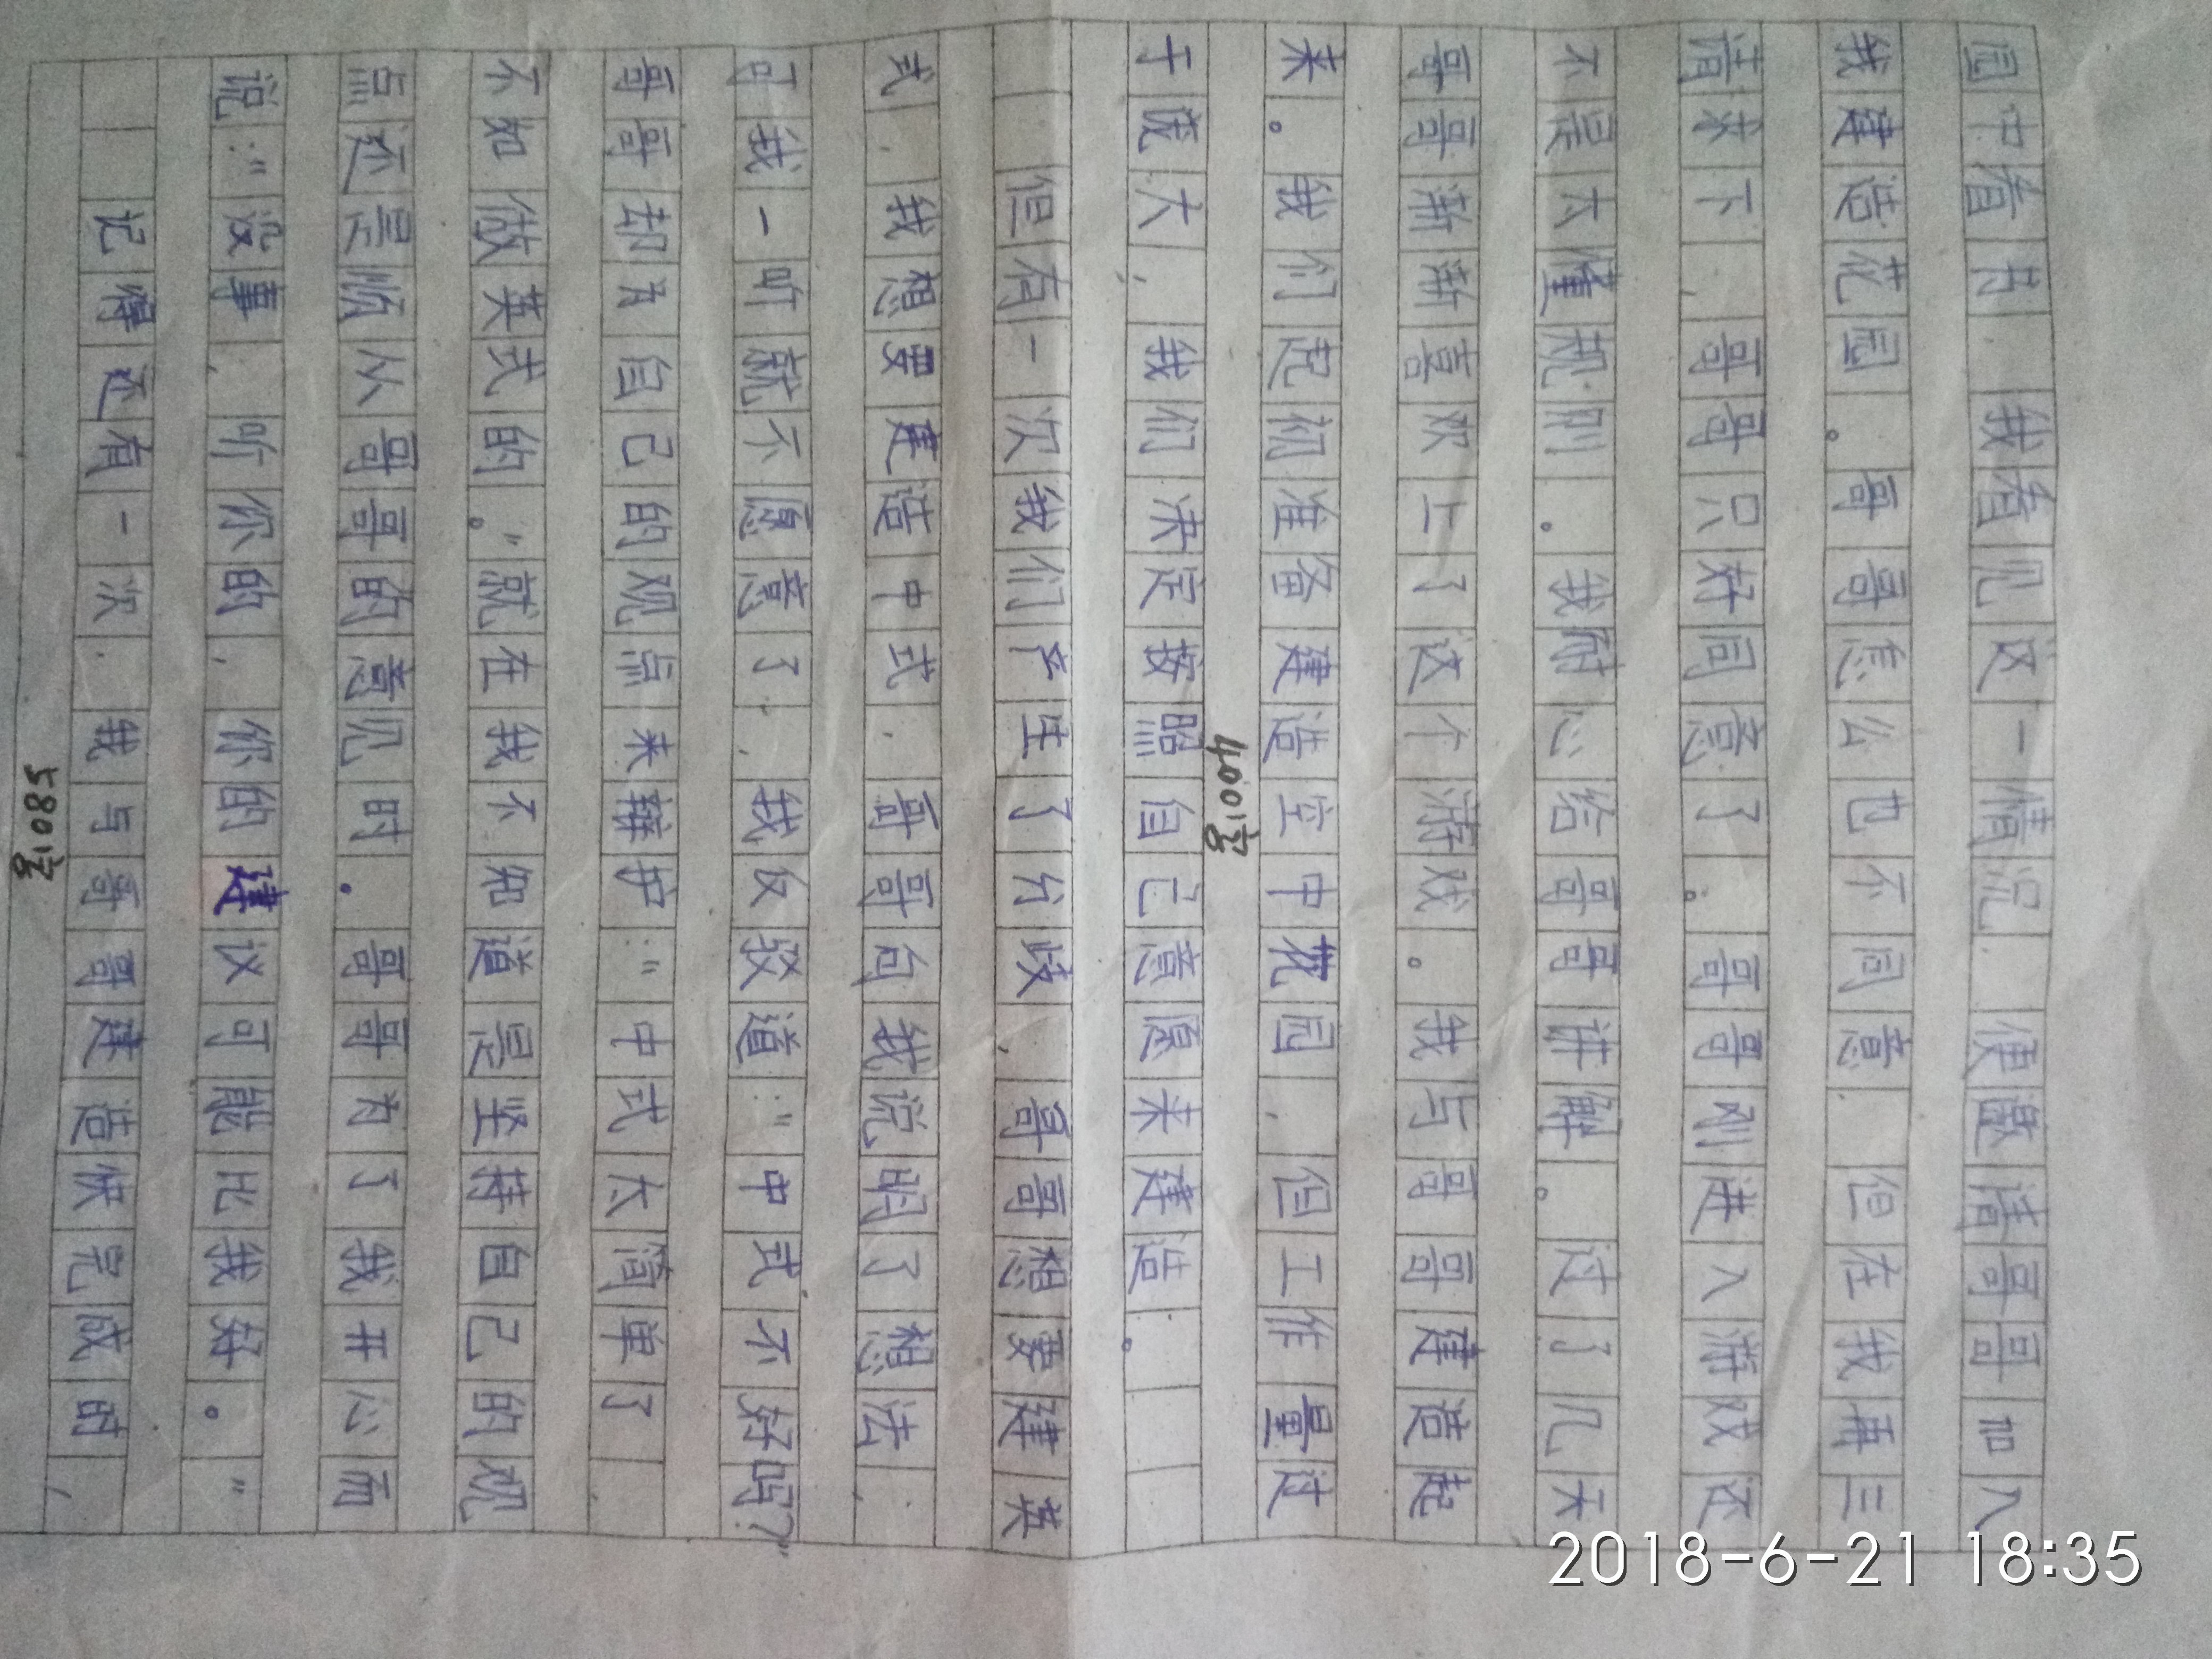 园中看书,我看见这一情况,便邀请哥哥加入
我建造花园。哥哥怎么也不同意,但在我再三
请求下,哥哥只好同意了。哥哥刚进入游戏还
不是太懂规则。我耐心给哥哥讲解。过了几天
哥哥渐渐喜欢上了这个游戏。我与哥哥建造起
来。我们起初准备建造空中花园,但工作量过
400字
于庞大,我们决定按照自己意愿来建造。
但有一次我们产生了分歧,哥哥想要建英
式,我想要建造中式,哥哥向我说明了想法,
可我一听就不愿意了,我反驳道:“中式不好吗?”
哥哥却为自己的观点来辩护:“中式太简单了,
不如做英式的。”就在我不知道是坚持自己的观
点还是顺从哥哥的意见时。哥哥为了我开心而
说:“没事,听你的,你的建议可能比我好。”
记得还有一次,我与哥哥建造快完成时,
2018-6-21 18:35